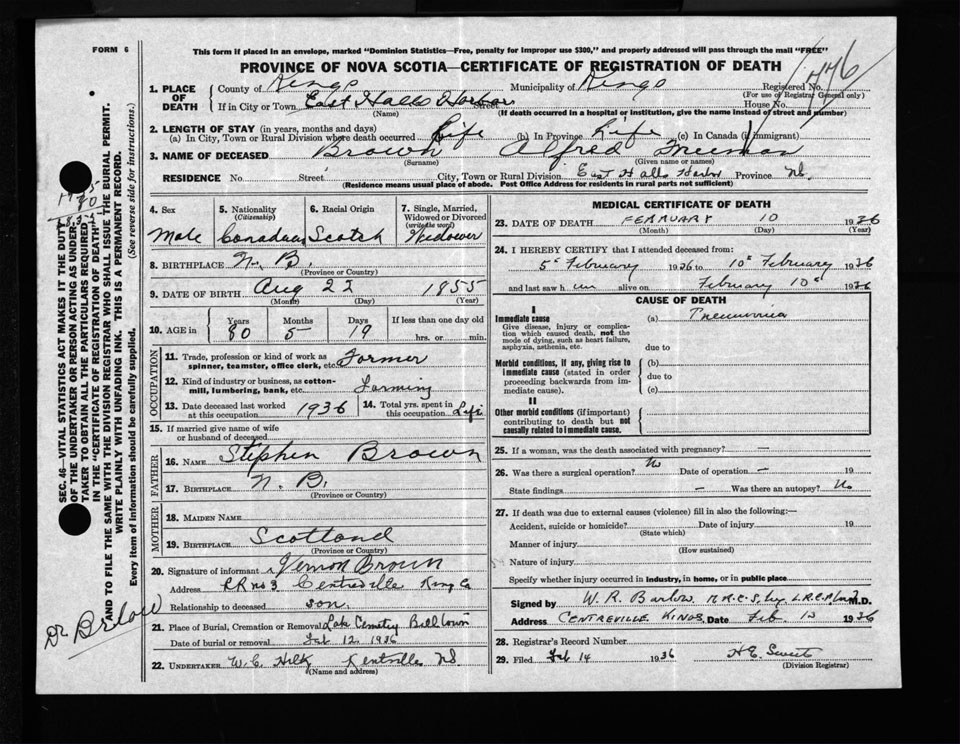 FORM 6
This form if placed in an envelope, marked "Dominion Statistics—Free, penalty for improper use $300," and properly addressed will pass through the mail "FREE"
PROVINCE OF NOVA SCOTIA—CERTIFICATE OF REGISTRATION OF DEATH
1. PLACE OF DEATH
County of Kings Municipality of Kings Registered No. 1776
(For use of Registrar General only)
If in City or Town East Halls Harbor Street House No.
(Name) (If death occurred in a hospital or institution, give the name instead of street and number)
2. LENGTH OF STAY (in years, months and days)
(a) In City, Town or Rural Division where death occurred Life (b) In Province Life (c) In Canada (if immigrant)
3. NAME OF DECEASED Brown Alfred Freeman
(Surname) (Given name or names)
RESIDENCE No. Street City, Town or Rural Division East Halls Harbor Province NS.
(Residence means usual place of abode. Post Office Address for residents in rural parts not sufficient)
4. Sex Male
5. Nationality (Citizenship) Canadian
6. Racial Origin Scotch
7. Single, Married, Widowed or Divorced (write the word) Widower
8. BIRTHPLACE N. B.
(Province or Country)
9. DATE OF BIRTH Aug 22 1855
(Month) (Day) (Year)
10. AGE in Years 80 Months 5 Days 19 If less than one day old hrs. or min.
OCCUPATION
11. Trade, profession or kind of work as spinner, teamster, office clerk, etc. Farmer
12. Kind of industry or business, as cotton-mill, lumbering, bank, etc. Farming
13. Date deceased last worked at this occupation 1936
14. Total yrs. spent in this occupation Life
15. If married give name of wife or husband of deceased
FATHER
16. NAME Stephen Brown
17. BIRTHPLACE N. B.
(Province or Country)
MOTHER
18. MAIDEN NAME
19. BIRTHPLACE Scotland
(Province or Country)
20. Signature of informant Vernon Brown
Address RR no 3 Centreville King Co
Relationship to deceased son.
21. Place of Burial, Cremation or Removal Lake Cemetry Bill Town
Date of burial or removal Feb 12, 1936
22. UNDERTAKER W. C. Kentville NS
(Name and address)
MEDICAL CERTIFICATE OF DEATH
23. DATE OF DEATH FEBRUARY 10 1936
(Month) (Day) (Year)
24. I HEREBY CERTIFY that I attended deceased from:
5th February 1936 to 10th February 1936
and last saw him alive on February 10th 1936
CAUSE OF DEATH
I
Immediate cause
Give disease, injury or complication which caused death, not the mode of dying, such as heart failure, asphyxia, asthenia, etc.
(a) Pneumonia
due to
Morbid conditions, if any, giving rise to immediate cause (stated in order proceeding backwards from immediate cause).
(b)
due to
(c)
II
Other morbid conditions (if important) contributing to death but not causally related to immediate cause.
25. If a woman, was the death associated with pregnancy? —
26. Was there a surgical operation? No Date of operation — 19
State findings — Was there an autopsy? No
27. If death was due to external causes (violence) fill in also the following:—
Accident, suicide or homicide? Date of injury 19
(State which)
Manner of injury
(How sustained)
Nature of injury
Specify whether injury occurred in industry, in home, or in public place
Signed by W. R. Barlow M.R.C.S, L.R.C.P. M.D.
Address CENTREVILLE KINGS. Date Feb. 13 1936
28. Registrar's Record Number
29. Filed Feb 14 1936 H E. Sweet
(Division Registrar)
SEC. 46—VITAL STATISTICS ACT MAKES IT THE DUTY OF THE UNDERTAKER OR PERSON ACTING AS UNDERTAKER TO OBTAIN ALL THE PARTICULARS REQUIRED IN THE "CERTIFICATE OF REGISTRATION OF DEATH" AND TO FILE THE SAME WITH THE DIVISION REGISTRAR WHO SHALL ISSUE THE BURIAL PERMIT.
WRITE PLAINLY WITH UNFADING INK. THIS IS A PERMANENT RECORD.
Every item of information should be carefully supplied. (See reverse side for instructions.)
Dr Barlow